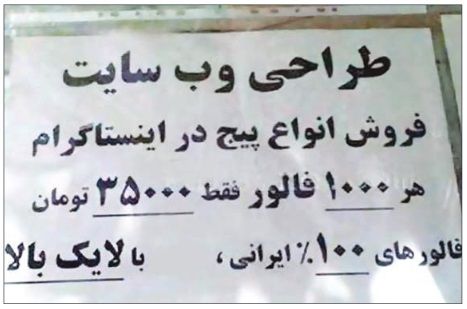 طراحی وب سایت
فروش انواع پیج در اینستاگرام
هر ۱۰۰۰ فالور فقط ۳۵۰۰۰ تومان
فالورهای ۱۰۰٪ ایرانی، با لایک بالا